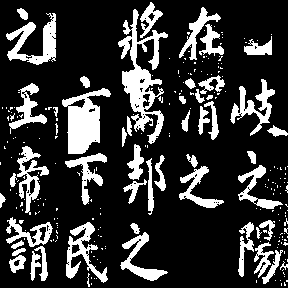 岐之陽
在渭之
將萬邦之
方下民
之王帝謂